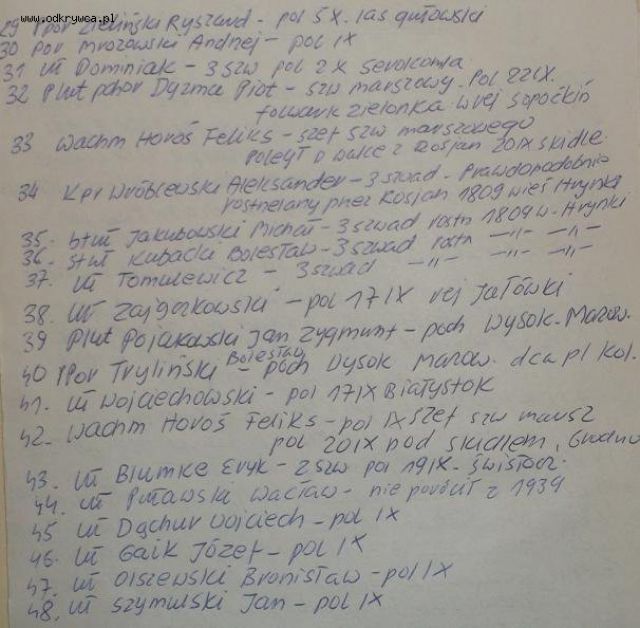 www.odkrywca.pl
29 ppor Zieliński Ryszard - pol 5X. las gułowski
30 por Mrozowski Andrzej - pol IX
31 uł Dominiak - 3 szw pol 2X Serokomla
32 Plut pchor Dyzma Piot - szw marszowy. Pol 22IX.
folwark Zielonka. w rej Sopoćkiń
33 wachm Horoś Feliks - szef szw marszowego
poległ w walce z Rosjan 20IX Skidle
34 Kpr Wróblewski Aleksander - 3 szwad - Prawdopodobnie
rostrzelany przez Rosjan 1809 wieś Hrynki
35. st uł Jakubowski Michał - 3 szwad rostn 1809 w. Hrynki
36. st uł Kubacki Bolesław - 3 szwad rostn -"- -"-
37. uł Tomulewicz - 3 szwad -"- -"- -"-
38. uł Zajączkowski - pol 17IX rej Jałówki
39 Plut Pojakowski Jan Zygmunt - poch Wysok. Mazow.
40 ppor Tryliński Bolesław - poch Wysok Mazow. dca pl kol.
41. uł Wojciechowski - pol 17IX Białystok
42. wachm Horoś Feliks - pol IX szef szw marsz
pol 20IX pod Skidlem, Grodno
43. uł Blumke Eryk - 2 szw pol 19IX. Świsłocz.
44. uł Puławski Wacław - nie powrócił z 1939
45 uł Dąchur Wojciech - pol IX
46. uł Gaik Józef - pol IX
47. uł Olszewski Bronisław - pol IX
48. uł Szymulski Jan - pol IX